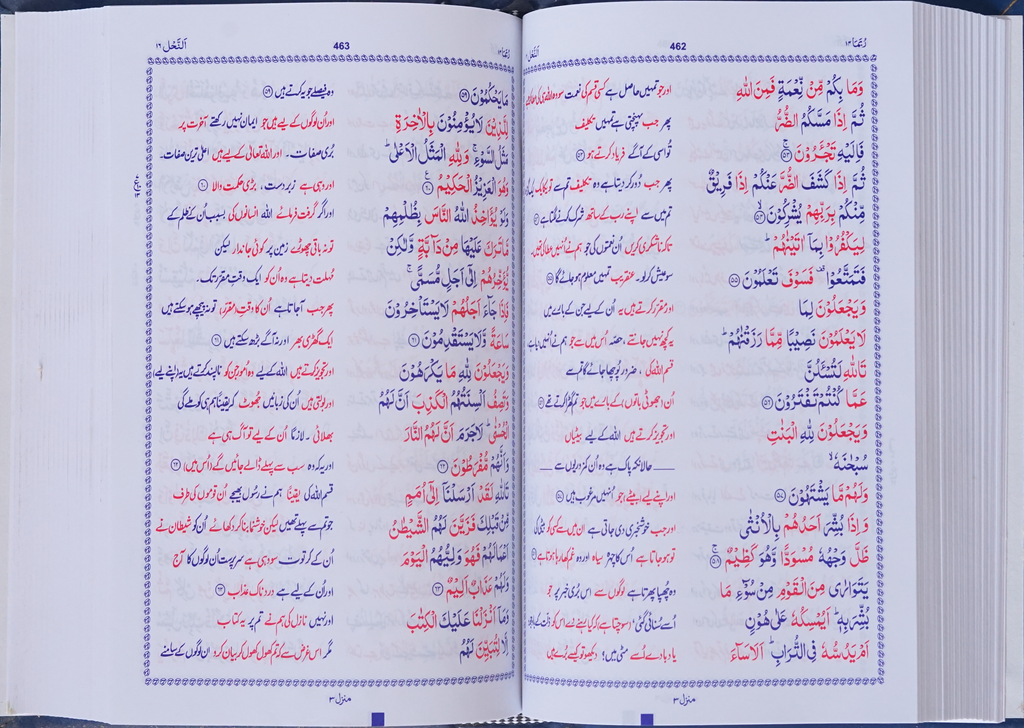 رُبَمَا ١٤ 462 اَلنَّحْل
وَمَا بِكُمْ مِّنْ نِّعْمَةٍ فَمِنَ اللّٰهِ اور جو تمہیں حاصل ہے کسی قسم کی نعمت سو وہ اللہ ہی کی
ثُمَّ اِذَا مَسَّكُمُ الضُّرُّ پھر جب پہنچتی ہے تمہیں تکلیف
فَاِلَيْهِ تَجْـَٔرُوْنَ ۚ ﴿۵۳﴾ تو اسی کے آگے فریاد کرتے ہو ﴿۵۳﴾
ثُمَّ اِذَا كَشَفَ الضُّرَّ عَنْكُمْ اِذَا فَرِيْقٌ پھر جب دُور کر دیتا ہے وہ تکلیف تم سے تو یکایک ایک
مِّنْكُمْ بِرَبِّهِمْ يُشْرِكُوْنَ ۙ ﴿۵۴﴾ تم میں سے اپنے رب کے ساتھ شرک کرنے لگتا ہے
لِيَكْفُرُوْا بِمَاۤ اٰتَيْنٰهُمْ ؕ تاکہ ناشکری کریں اُن نعمتوں کی جو ہم نے اُنہیں عطا کی ہیں۔
فَتَمَتَّعُوْا ۫ فَسَوْفَ تَعْلَمُوْنَ ﴿۵۵﴾ سو عیش کر لو۔ عنقریب تمہیں معلوم ہو جائے گا ﴿۵۵﴾
وَيَجْعَلُوْنَ لِمَا اور مقرر کرتے ہیں یہ اُن کے لیے جن کے بارے میں
لَا يَعْلَمُوْنَ نَصِيْبًا مِّمَّا رَزَقْنٰهُمْ ؕ یہ کچھ نہیں جانتے، حصّہ اُس میں سے جو ہم نے اُنہیں دیا ہے
تَاللّٰهِ لَتُسْـَٔلُنَّ قسم اللہ کی، ضرور پوچھا جائے گا تم سے
عَمَّا كُنْتُمْ تَفْتَرُوْنَ ﴿۵۶﴾ اُن جھوٹی باتوں کے بارے میں جو تم گھڑ کرتے تھے ﴿۵۶﴾
وَيَجْعَلُوْنَ لِلّٰهِ الْبَنٰتِ اور تجویز کرتے ہیں اللہ کے لیے بیٹیاں
سُبْحٰنَهٗ ۙ حالانکہ پاک ہے وہ اُن کمزوریوں سے
وَلَهُمْ مَّا يَشْتَهُوْنَ ﴿۵۷﴾ اور اپنے لیے بیٹے جو اُنہیں مرغوب ہیں ﴿۵۷﴾
وَاِذَا بُشِّرَ اَحَدُهُمْ بِالْاُنْثٰى اور جب خوشخبری دی جاتی ہے ان میں سے کسی کو بیٹی کی
ظَلَّ وَجْهُهٗ مُسْوَدًّا وَّهُوَ كَظِيْمٌ ۚ ﴿۵۸﴾ تو ہو جاتا ہے اُس کا چہرہ سیاہ اور وہ غم کھا رہا ہوتا ہے ﴿۵۸﴾
يَتَوَارٰى مِنَ الْقَوْمِ مِنْ سُوْٓءِ مَا وہ چھپا پھرتا ہے لوگوں سے اس بُری خبر پر جو
بُشِّرَ بِهٖ ؕ اَيُمْسِكُهٗ عَلٰى هُوْنٍ اُسے سُنائی گئی، (سوچتا ہے) کہ کیا رہنے دے اس کو ذلّت کے
اَمْ يَدُسُّهٗ فِى التُّرَابِ ؕ اَلَا سَآءَ یا دبا دے اُسے مٹی میں؛ دیکھو تو کیسے بُرے ہیں
منزل ٣
رُبَمَا ١٤ 463 اَلنَّحْل ١٦
مَا يَحْكُمُوْنَ ﴿۵۹﴾ وہ فیصلے جو یہ کرتے ہیں ﴿۵۹﴾
لِلَّذِيْنَ لَا يُؤْمِنُوْنَ بِالْاٰخِرَةِ اور اُن لوگوں کے لیے ہیں جو ایمان نہیں رکھتے آخرت پر
مَثَلُ السَّوْءِ ۚ وَلِلّٰهِ الْمَثَلُ الْاَعْلٰى ؕ بُری صفات۔ اور اللہ تعالیٰ کے لیے ہیں اعلیٰ ترین صفات۔
وَهُوَ الْعَزِيْزُ الْحَكِيْمُ ﴿۶۰﴾ اور وہی ہے زبردست، بڑی حکمت والا ﴿۶۰﴾
وَلَوْ يُؤَاخِذُ اللّٰهُ النَّاسَ بِظُلْمِهِمْ اور اگر گرفت فرمائے اللہ انسانوں کی بسبب اُن کے ظلم کے
مَّا تَرَكَ عَلَيْهَا مِنْ دَآبَّةٍ وَّلٰكِنْ تو نہ باقی چھوڑے زمین پر کوئی جاندار لیکن
يُّؤَخِّرُهُمْ اِلٰٓى اَجَلٍ مُّسَمًّى ۚ مُہلت دیتا ہے وہ اُن کو ایک وقتِ مقرّر تک۔
فَاِذَا جَآءَ اَجَلُهُمْ لَا يَسْتَاْخِرُوْنَ پھر جب آ جاتا ہے اُن کا وقتِ مقرّر، تو نہ پیچھے ہو سکتے ہیں
سَاعَةً وَّلَا يَسْتَقْدِمُوْنَ ﴿۶۱﴾ ایک گھڑی بھر اور نہ آگے بڑھ سکتے ہیں ﴿۶۱﴾
وَيَجْعَلُوْنَ لِلّٰهِ مَا يَكْرَهُوْنَ اور تجویز کرتے ہیں اللہ کے لیے وہ امور جن کو ناپسند کرتے ہیں یہ (اپنے لیے)
وَتَصِفُ اَلْسِنَتُهُمُ الْكَذِبَ اَنَّ لَهُمُ اور بولتی ہیں اُن کی زبانیں جھوٹ کہ یقیناً ہم ہی کو ملے گی
الْحُسْنٰى ؕ لَا جَرَمَ اَنَّ لَهُمُ النَّارَ بھلائی۔ لازماً اُن کے لیے تو آگ ہی ہے
وَاَنَّهُمْ مُّفْرَطُوْنَ ﴿۶۲﴾ اور یہ کہ وہ سب سے پہلے ڈالے جائیں گے (اُس میں) ﴿۶۲﴾
تَاللّٰهِ لَقَدْ اَرْسَلْنَاۤ اِلٰٓى اُمَمٍ قسم اللہ کی یقیناً ہم نے رسول بھیجے اُن قوموں کی طرف
مِّنْ قَبْلِكَ فَزَيَّنَ لَهُمُ الشَّيْطٰنُ جو تم سے پہلے تھیں لیکن خوشنما بنا کر دکھائے اُن کو شیطان نے
اَعْمَالَهُمْ فَهُوَ وَلِيُّهُمُ الْيَوْمَ اُن کے کرتوت سو وہی ہے سرپرست اُن لوگوں کا آج
وَلَهُمْ عَذَابٌ اَلِيْمٌ ﴿۶۳﴾ اور اُن کے لیے ہے دردناک عذاب ﴿۶۳﴾
وَمَاۤ اَنْزَلْنَا عَلَيْكَ الْكِتٰبَ اور نہیں نازل کی ہم نے تم پر یہ کتاب
اِلَّا لِتُبَيِّنَ لَهُمُ مگر اس غرض سے کہ تم کھول کھول کر بیان کر دو ان لوگوں کے سامنے
منزل ٣